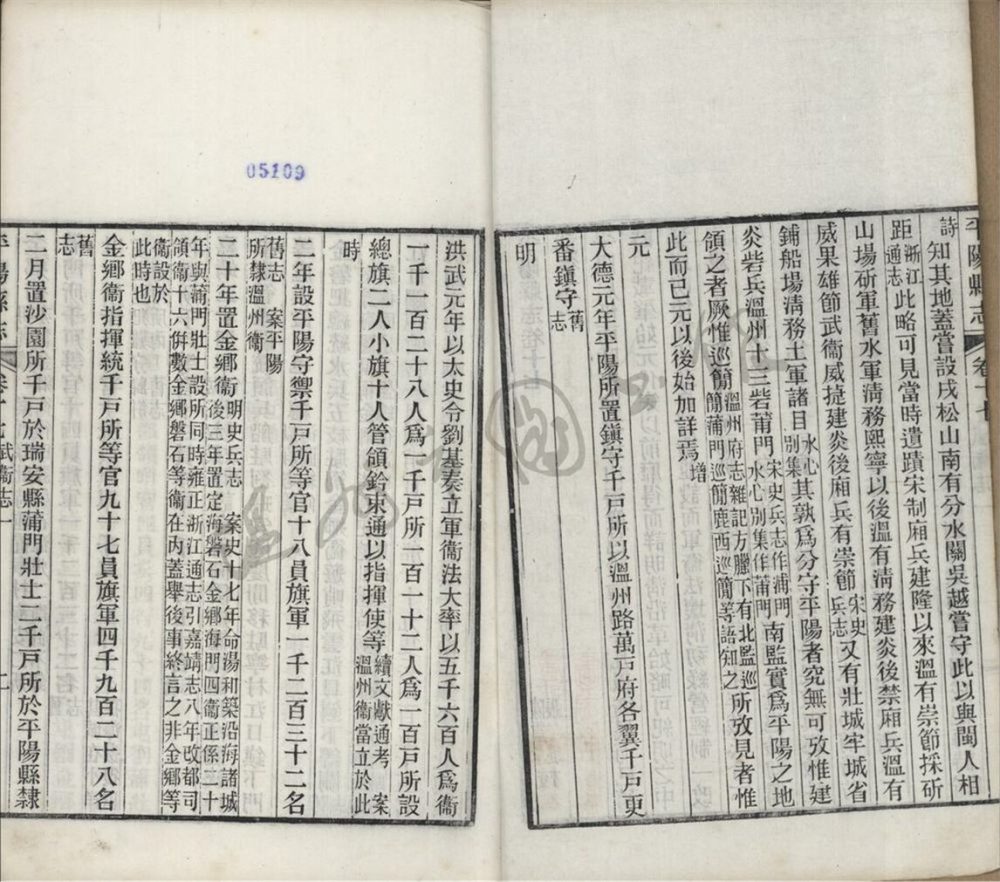 平陽縣志 卷十七
詩知其地蓋嘗設戍松山南有分水關吳越嘗守此以與閩人相
距浙江通志此略可見當時遺蹟宋制廂兵建隆以來溫有崇節採斫
山場斫軍舊水軍淸務熙寧以後溫有淸務建炎後禁廂兵溫有
威果雄節武衞威捷建炎後廂兵有崇節宋史兵志又有壯城牢城省
鋪船場淸務土軍諸目水心別集其孰爲分守平陽者究無可攷惟建
炎砦兵溫州十三砦莆門宋史兵志作浦門水心別集作莆門南監實爲平陽之地
領之者厥惟巡𥳑溫州府志雜記方臘下有北監巡𥳑蒲門巡𥳑鹿西巡𥳑等語知之所攷見者惟
此而已元以後始加詳焉增
元
大德元年平陽所置鎭守千戸所以溫州路萬戸府各翼千戸更
番鎭守舊志
明
05109
洪武元年以太史令劉基奏立軍衞法大率以五千六百人爲衞
一千一百二十八人爲一千戸所一百一十二人爲一百戸所設
總旗二人小旗十人管領鈐束通以指揮使等續文獻通考 案溫州衞當立於此
時
二年設平陽守禦千戸所等官十八員旗軍一千二百三十二名
舊志 案平陽所隸溫州衞
二十年置金鄉衞明史兵志 案史十七年命湯和築沿海諸城後三年置定海磐石金鄉海門四衞正係二十
年與蒲門壯士設所同時雍正浙江通志引嘉靖志八年改都司領衞十六倂數金鄉磐石等衞在內蓋舉後事終言之非金鄉等
衞設於此時也
金鄉衞指揮統千戸所等官九十七員旗軍四千九百二十八名
舊志
二月置沙園所千戸於瑞安縣蒲門壯士二千戸所於平陽縣隸
武衞志一 二